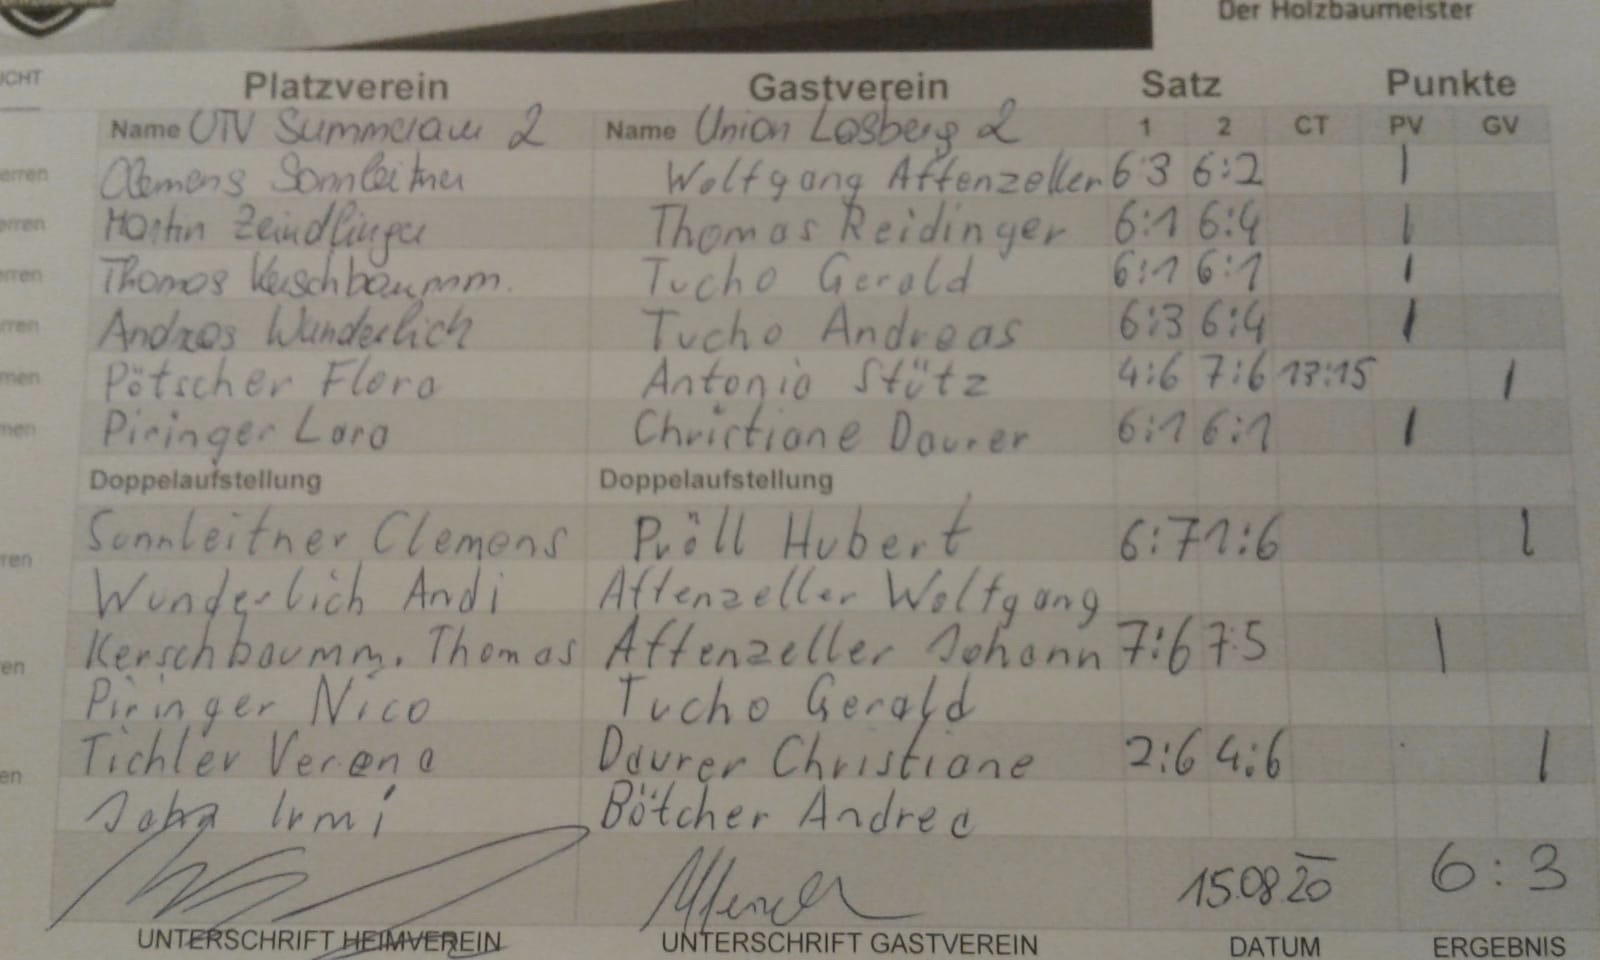 Der Holzbaumeister
UCHT Platzverein Gastverein Satz Punkte
Name UTV Summerau 2 Name Union Lasberg 2 1 2 CT PV GV
erren Clemens Sonnleitner Wolfgang Affenzeller 6 3 6:2 1
erren Martin Zeindlinger Thomas Reidinger 6:1 6:4 1
erren Thomas Kerschbaumm. Tucho Gerald 6:1 6:1 1
rren Andreas Wunderlich Tucho Andreas 6:3 6:4 1
men Pötscher Flora Antonia Stütz 4:6 7:6 13:15 1
men Piringer Lara Christiane Daurer 6:1 6:1 1
Doppelaufstellung Doppelaufstellung
rren Sonnleitner Clemens Pröll Hubert 6:7 1:6 1
Wunderlich Andi Affenzeller Wolfgang
ren Kerschbaumm. Thomas Affenzeller Johann 7:6 7:5 1
Piringer Nico Tucho Gerald
en Tichler Verena Daurer Christiane 2:6 4:6 1
Irmi Bötcher Andrea
15.08 20 6:3
UNTERSCHRIFT HEIMVEREIN UNTERSCHRIFT GASTVEREIN DATUM ERGEBNIS